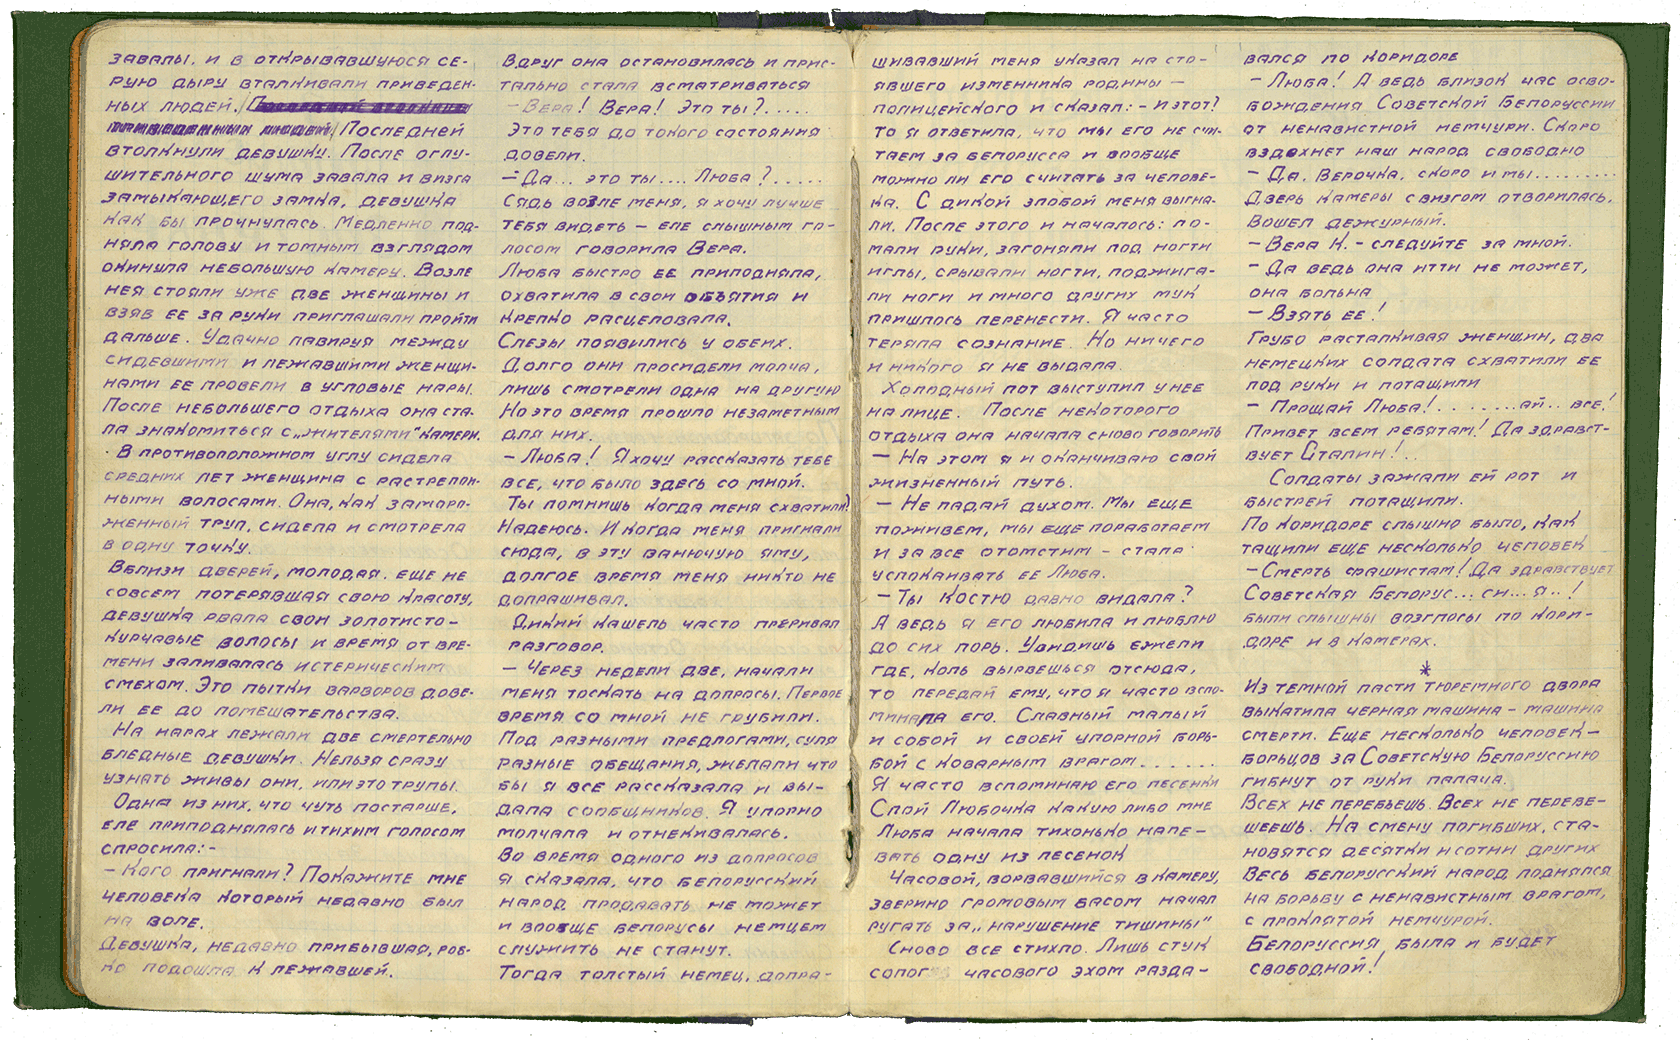 завалы, и в открывавшуюся се-
рую дыру вталкивали приведен-
ных людей. Последней
втолкнули девушку. После оглу-
шительного шума завала и визга
замыкающего замка, девушка
как бы прочнулась. Медленно под-
няла голову и томным взглядом
окинула небольшую камеру. Возле
нея стояли уже две женщины и
взяв ее за руки приглашали пройти
дальше. Удачно лавируя между
сидевшими и лежавшими женщи-
нами ее провели в угловые нары.
После небольшего отдыха она ста-
ла знакомиться с „жителями" камери.
В противоположном углу сидела
средних лет женщина с растрепон-
ными волосами. Она, как заморо-
женный труп, сидела и смотрела
в одну точку.
Вблизи дверей, молодая. еще не
совсем потерявшая свою красоту,
девушка рвала свои золотисто-
курчавые волосы и время от вре-
мени заливалась истерическим
смехом. Это пытки варворов дове-
ли ее до помешательства.
На нарах лежали две смертельно
бледные девушки. Нельзя сразу
узнать живы они, или это трупы.
Одна из них, что чуть постарше,
еле приподнялась и тихим голосом
спросила:-
- Кого пригнали? Покажите мне
человека который недавно был
на воле.
Девушка, недавно прибывшая, роб-
ко подошла к лежавшей.
Вдруг она остановилась и прис-
тально стала всматриваться
- Вера! Вера! Это ты?.....
Это тебя до токого состояния
довели.
- Да... это ты.... Люба?.....
Сядь возле меня, я хочу лучше
тебя видеть – еле слышным го-
лосом говорила Вера.
Люба быстро ее приподняла,
охватила в свои объятия и
крепко расцеловала.
Слезы появились у обеих.
Долго они просидели молча,
лишь смотрели одна на другую
Но это время прошло незаметным
для них.
- Люба! Я хочу рассказать тебе
все, что было здесь со мной.
Ты помнишь когда меня схватили?
Надеюсь. И когда меня пригнали
сюда, в эту ванючую яму,
долгое время меня никто не
допрашивал.
Дикий кашель часто преривал
разговор.
- Через недели две, начали
меня тоскать на допросы. Первое
время со мной не грубили.
Под разными предлогами, суля
разные обещания, желали что
бы я все рассказала и вы-
дала сообщников. Я упорно
молчала и отнекивалась.
Во время одного из допросов
я сказала, что белорусский
народ продавать не может
и вообще белорусы немцем
служить не станут.
Тогда толстый немец, допра-
шивавший меня указал на сто-
явшего изменника родины –
полицейского и сказал: - и этот?
то я ответила, что мы его не счи-
таем за белорусса и вообще
можно ли его считать за челове-
ка. С дикой злобой меня выгна-
ли. После этого и началось: ло-
мали руки, загоняли под ногти
иглы, срывали ногти, поджига-
ли ноги и много других мук
пришлось перенести. Я часто
теряла сознание. Но ничего
и никого я не выдала.
Холодный пот выступил у нее
на лице. После некоторого
отдыха она начала сново говорить
- На этом я и оканчиваю свой
жизненный путь.
- Не падай духом. Мы еще
поживем, мы еще поработаем
и за все отомстим – стала
успокаивать ее Люба.
- Ты Костю давно видала?
А ведь я его любила и люблю
до сих порь. Увидишь ежели
где, коль вырвешься отсюда,
то передай ему, что я часто вспо-
минала его. Славный малый
и собой и своей упорной борь-
бой с коварным врагом......
Я часто вспоминаю его песенки
Спой Любочка какую либо мне
Люба начала тихонько напе-
вать одну из песенок
Часовой, ворвавшийся в камеру,
зверино громовым басом начал
ругать за „нарушение тишины"
Сново все стихло. Лишь стук
сапог часового эхом разда-
вался по коридоре
- Люба! А ведь близок час осво-
бождения Советской Белоруссии
от ненавистной немчури. Скоро
вздохнет наш народ свободно
- Да, Верочка, скоро и мы.........
Дверь камеры с визгом отворилась.
Вошел дежурный.
- Вера К. - следуйте за мной.
- Да ведь она итти не может,
она больна
- Взять ее!
Грубо расталкивая женщин, два
немецких солдата схватили ее
под руки и потащили
- Прощай Люба!........ай.. все!
Привет всем ребятам! Да здравст-
вует Сталин!..
Солдаты зажали ей рот и
быстрей потащили.
По коридоре слышно было, как
тащили еще несколько человек
- Смерть фашистам! Да здравствует
Советская Белорус... си... я..!
были слышны возглосы по кори-
доре и в камерах.
*
Из темной пасти тюремного двора
выкатила черная машина – машина
смерти. Еще несколько человек –
борьцов за Советскую Белоруссию
гибнут от руки палача.
Всех не перебьешь. Всех не переве-
шеешь. На смену погибших, ста-
новятся десятки и сотни других
Весь белорусский народ поднялся
на борьбу с ненавистным врагом,
с проклятой немчурой.
Белоруссия была и будет
свободной!